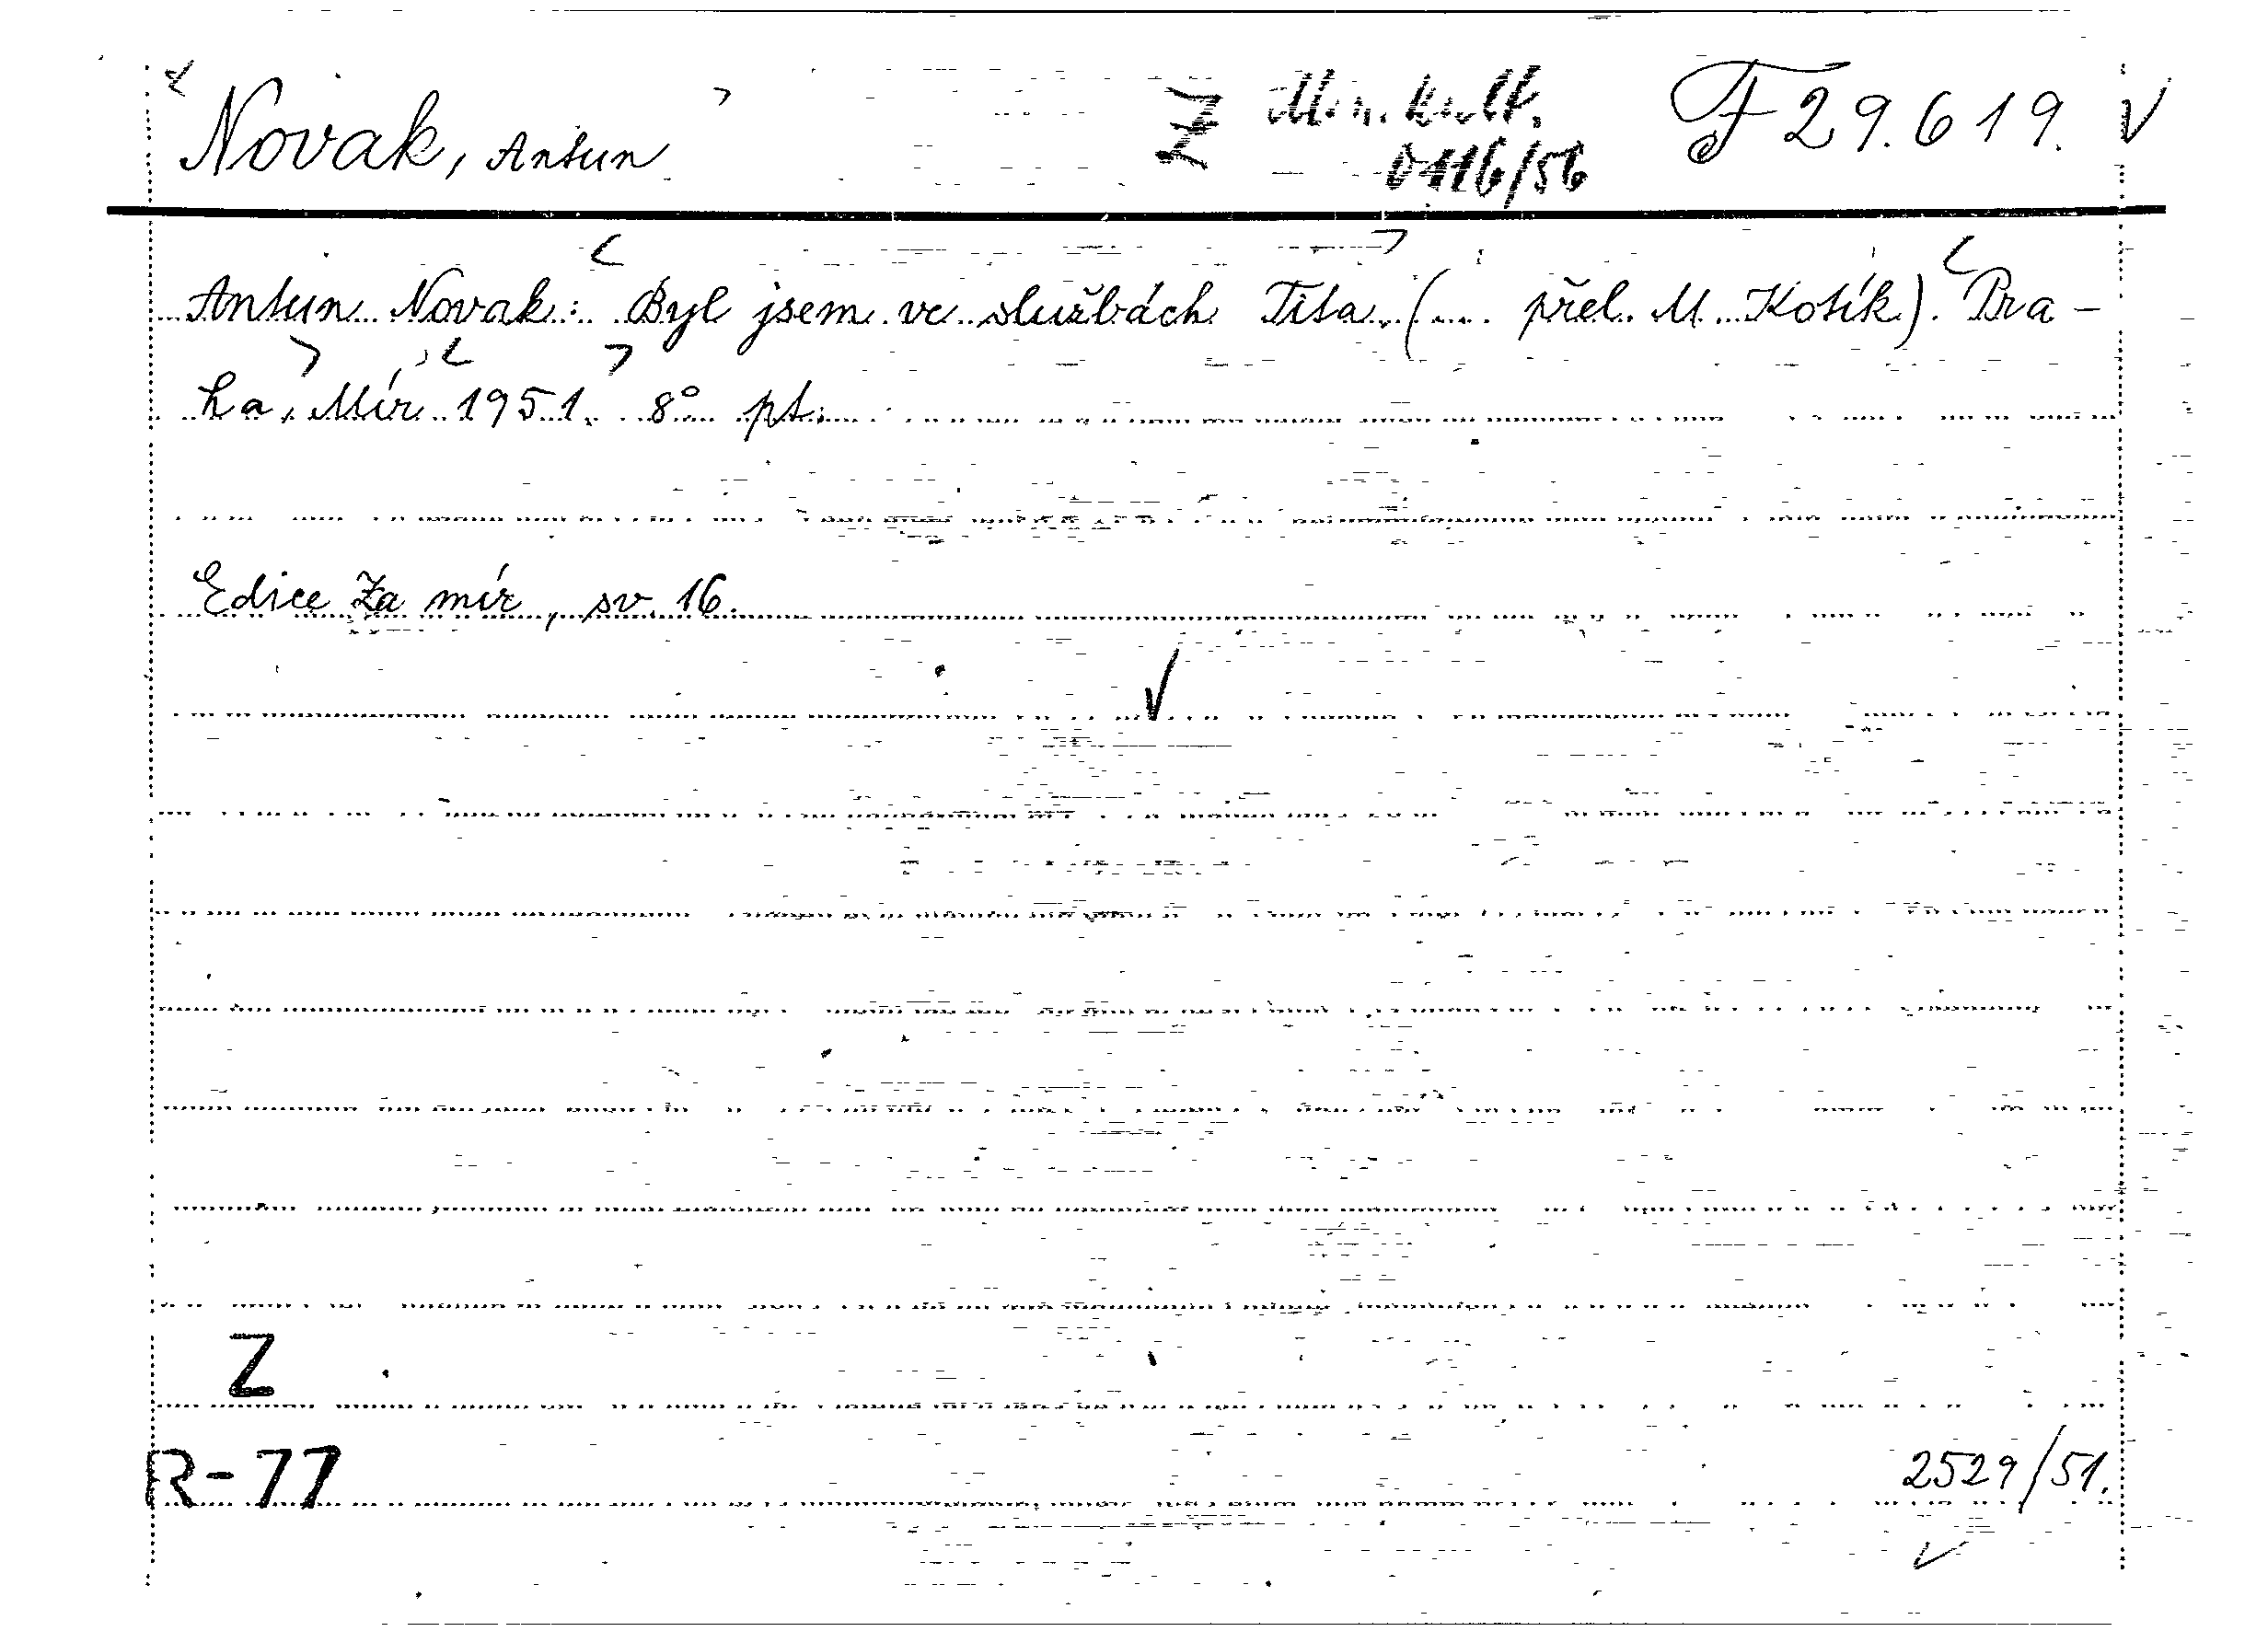 Novak, Antun Z Min. kult. 0116/56 F 29.619. V
Antun Novak: Byl jsem ve službách Tita. (... přel. M. Kotík). Pra-
ha, Mír 1951. 8° pt.
Edice Za mír, sv. 16.
Z
R-77 2529/51.